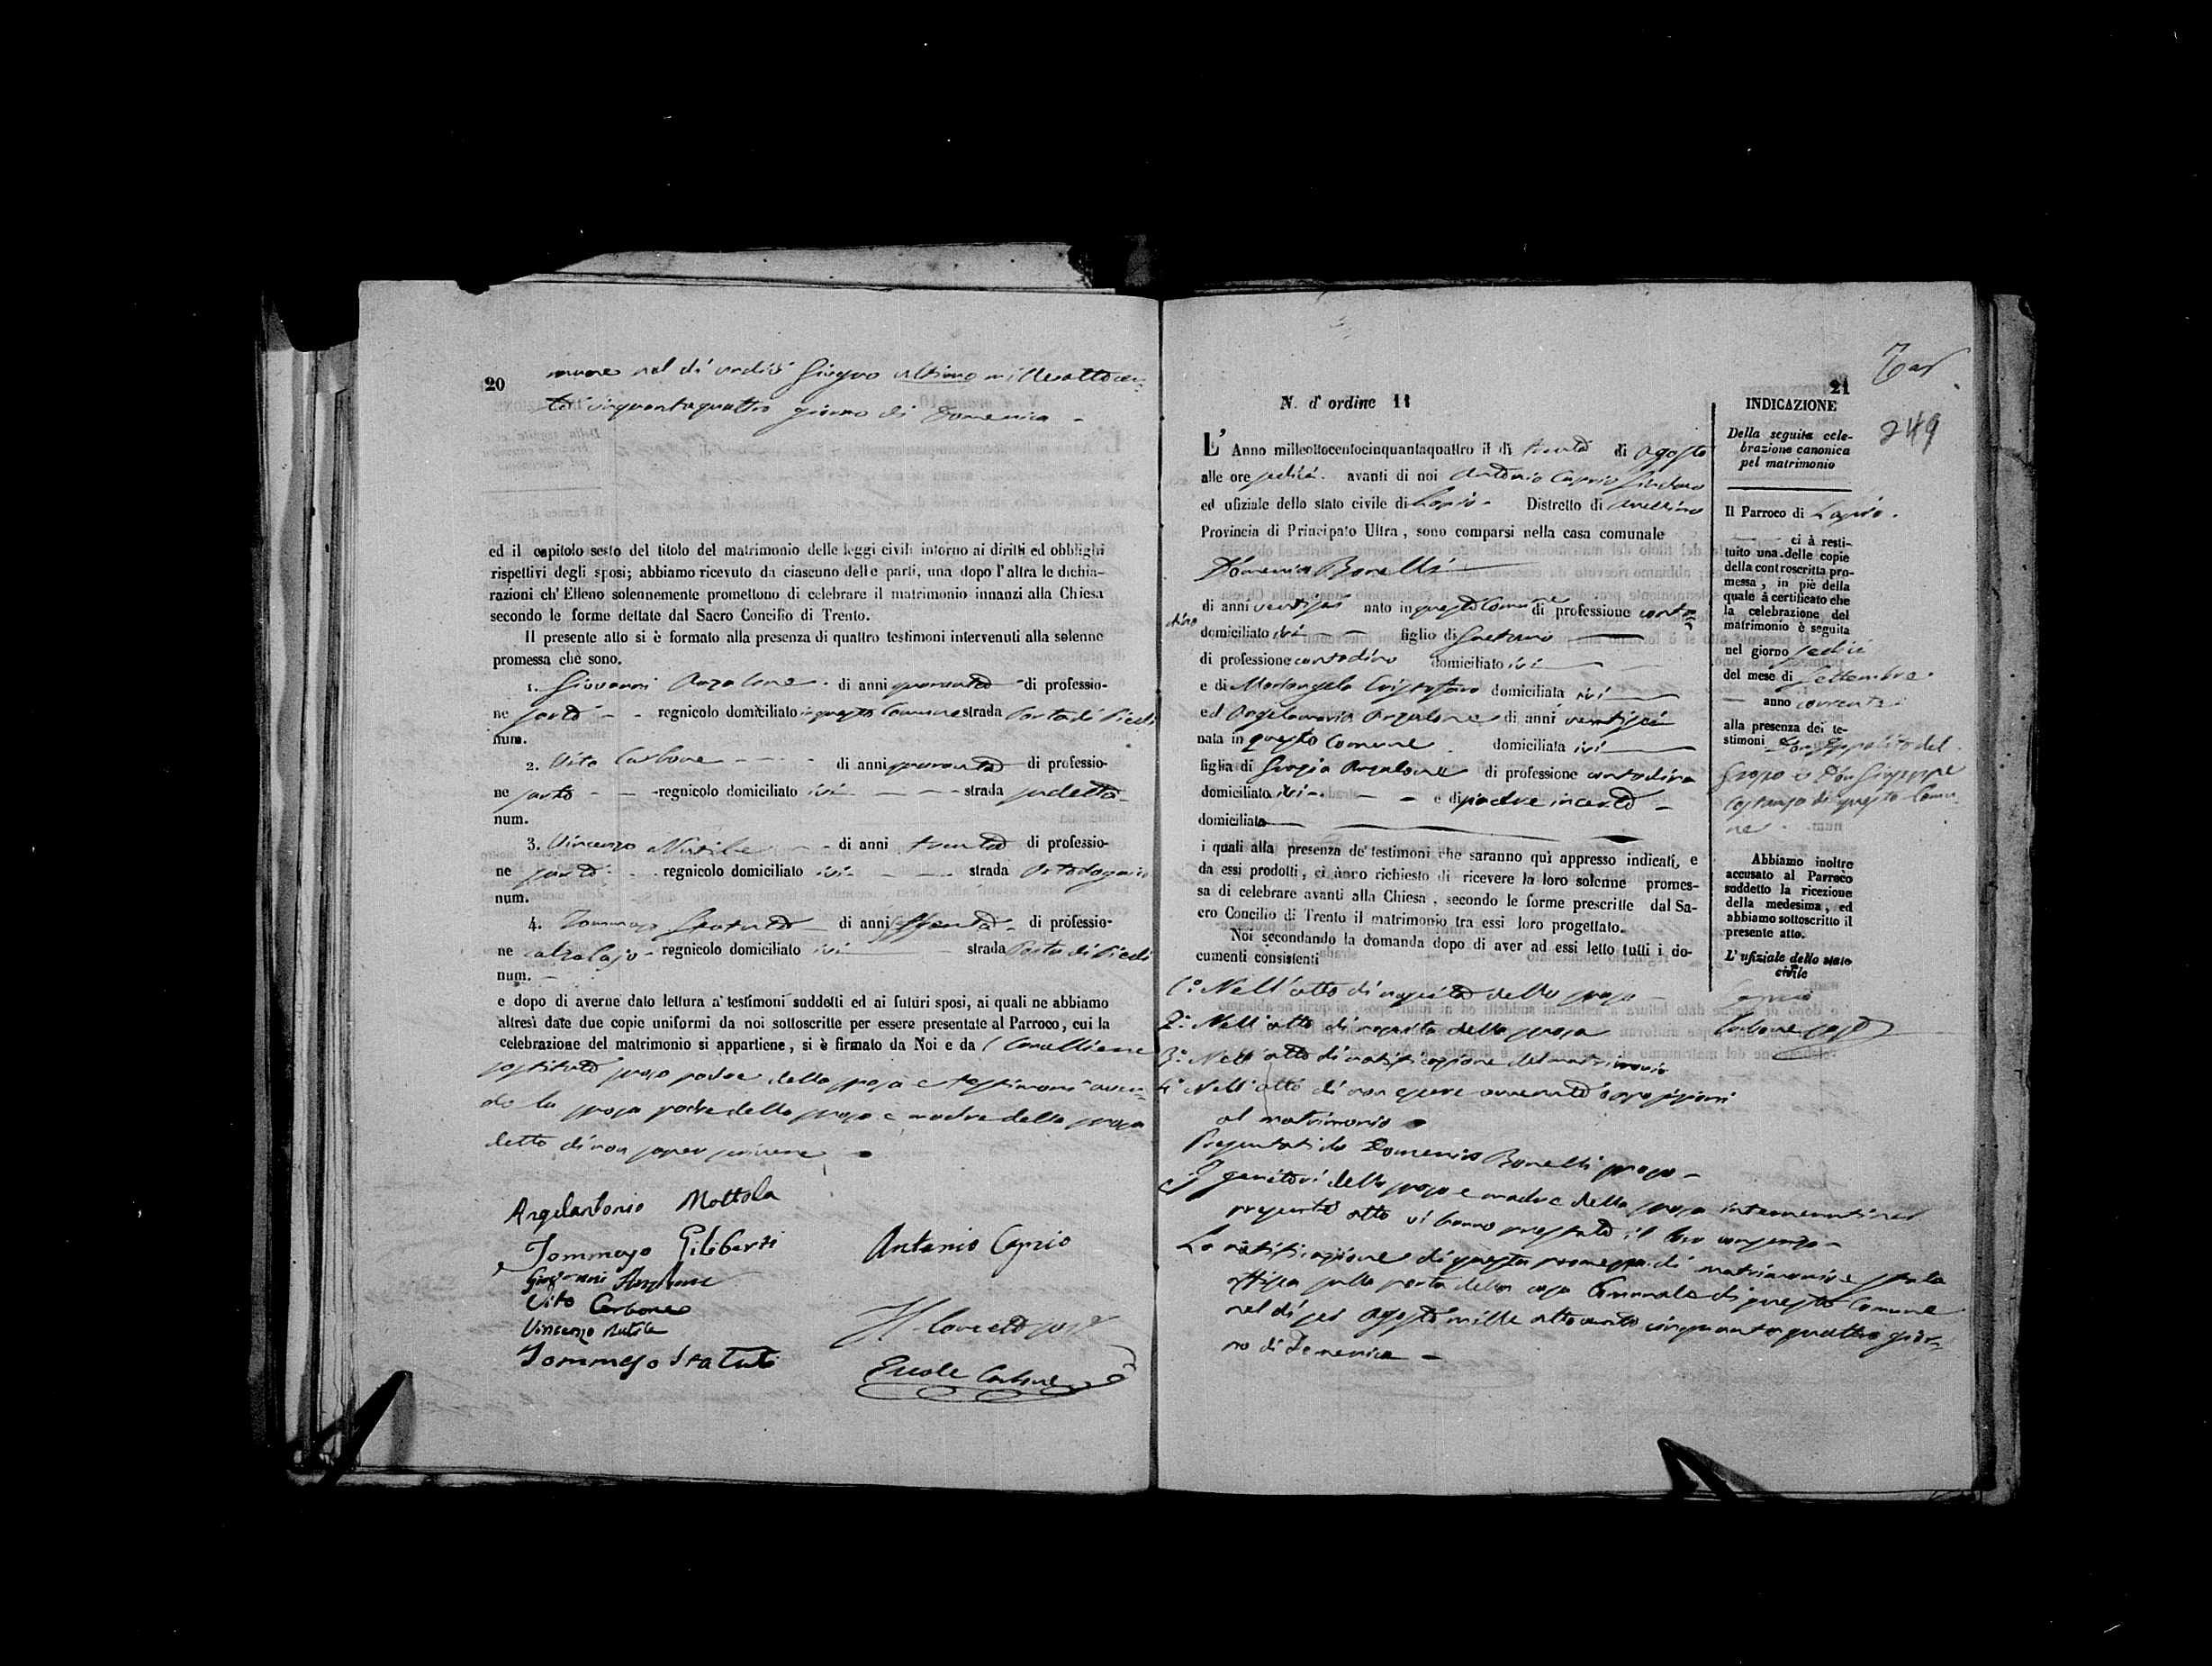 20
mune nel dì undici Giugno ultimo milleottocen-
to cinquantaquattro giorno di Domenica -
ed il capitolo sesto del titolo del matrimonio delle leggi civili intorno ai diritti ed obblighi
rispettivi degli sposi; abbiamo ricevuto da ciascuno delle parti, una dopo l'altra le dichia-
razioni ch' Elleno solennemente promettono di celebrare il matrimonio innanzi alla Chiesa
secondo le forme dettate dal Sacro Concilio di Trento.
Il presente atto si è formato alla presenza di quattro testimoni intervenuti alla solenne
promessa chè sono.
1. Giovanni Anzalone - di anni quaranta di professio-
ne sarto - - regnicolo domiciliato in questo Comune strada Porta di Piedi
num.
2. Vito Carbone - - - di anni quaranta di professio-
ne sarto - - regnicolo domiciliato ivi - - - strada sudetta
num.
3. Vincenzo - - di anni trenta di professio-
ne sarto - - regnicolo domiciliato ivi - - strada
num.
4. Tommaso Statuto - di anni sessanta - di professio-
ne calzolajo - regnicolo domiciliato ivi - strada Porta di Piedi
num. -
e dopo di averne dato lettura a' testimoni suddetti ed ai futuri sposi, ai quali ne abbiamo
altresì date due copie uniformi da noi sottoscritte per essere presentate al Parroco, cui la
celebrazione del matrimonio si appartiene, si è firmato da Noi e da Cancelliere
sostituto sposo padre della sposa e testimoni aven-
do la sposa padre dello sposo e madre della sposa
detto di non saper scrivere -
Angelantonio Mottola
Tommaso Giliberti
Giovanni Anzalone
Vito Carbone
Vincenzo
Tommaso Statuto
Antonio Caprio
Il
Ercole Carbone
21
249
N. d' ordine 11
L' Anno milleottocentocinquantaquattro il dì trenta di Agosto
alle ore sedici avanti di noi Antonio Caprio Sindaco
ed ufiziale dello stato civile di Lapio - Distretto di Avellino
Provincia di Principato Ultra, sono comparsi nella casa comunale
Domenico Bonelli
di anni ventisei nato in questo Comune di professione conta-
dino
domiciliato ivi - - figlio di Gaetano
di professione contadino domiciliato ivi
e di Mariangela Cristofaro domiciliata ivi
ed Angelamaria Anzalone di anni ventisei
nata in questo Comune domiciliata ivi
figlia di Grazia Anzalone di professione contadina
domiciliata ivi - - - e di padre incerto -
domiciliata
i quali alla presenza de' testimoni che saranno quì appresso indicati, e
da essi prodotti, ci ànno richiesto di ricevere la loro solenne promes-
sa di celebrare avanti alla Chiesa, secondo le forme prescritte dal Sa-
cro Concilio di Trento il matrimonio tra essi loro progettato.
Noi secondando la domanda dopo di aver ad essi letto tutti i do-
cumenti consistenti
1.° Nell'atto di nascita dello sposo
2.° Nell'atto di nascita della sposa
3.° Nell'atto di notificazione del matrimonio
4.° Nell'atto di non essere avvenuto opposizioni
al matrimonio
Presentati da Domenico Bonelli sposo -
I genitori dello sposo e madre della sposa intervenuti nel
presente atto vi hanno prestato il loro consenso -
La notificazione di questa promessa di matrimonio è stata
affissa sulla porta della casa Comunale di questo Comune
nel dì sei Agosto mille ottocento cinquantaquattro gior-
no di Domenica -
INDICAZIONE
Della seguita cele-
brazione canonica
pel matrimonio
Il Parroco di Lapio.
ci à resti-
tuito una delle copie
della controscritta pro-
messa, in piè della
quale à certificato che
la celebrazione del
matrimonio è seguita
nel giorno sedici
del mese di Settembre.
anno corrente
alla presenza dei te-
stimoni Don Ippolito del
Grosso e Don Giuseppe
Costanza di questo Comu-
ne.
Abbiamo inoltre
accusato al Parroco
suddetto la ricezione
della medesima, ed
abbiamo sottoscritto il
presente atto.
L' ufiziale dello stato
civile
Caprio
Carbone